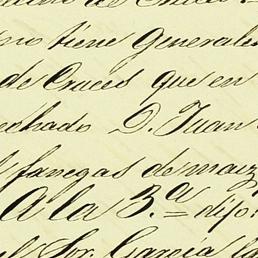 no tiene generales
de Cruces que en
echado D. Juan
fanegas de maiz
A la 3.ª = dijo:
Sor. García la